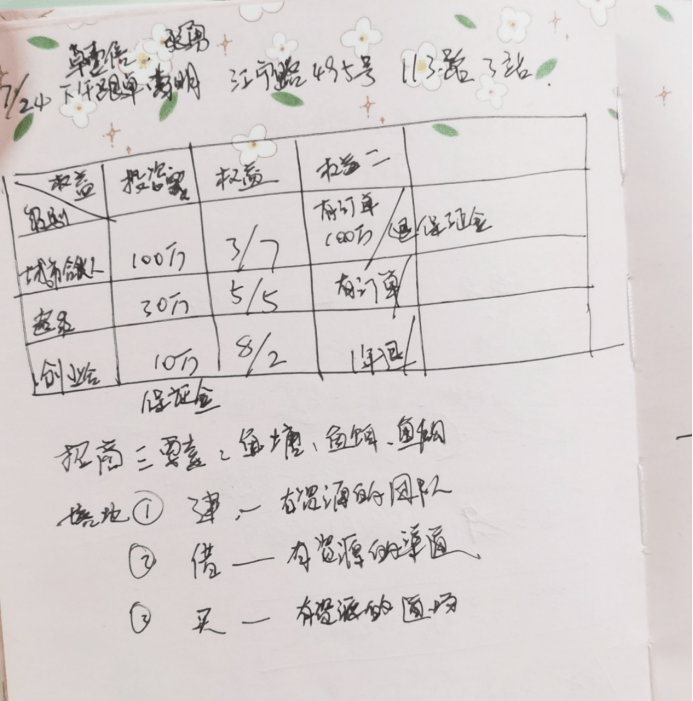 7/24 下午 嵩明 江宁路495号 113路3站.
权益 投资额 权益 权益二
级别
城市合伙人 100万 3/7 有订单100万/退保证金
30万 5/5 有订单/
创业会 10万 8/2 1年退/
保证金
招商三要素:鱼塘、鱼饵、鱼钩
① 建 — 有资源的团队
② 借 — 有资源的渠道
③ 买 — 有资源的道场